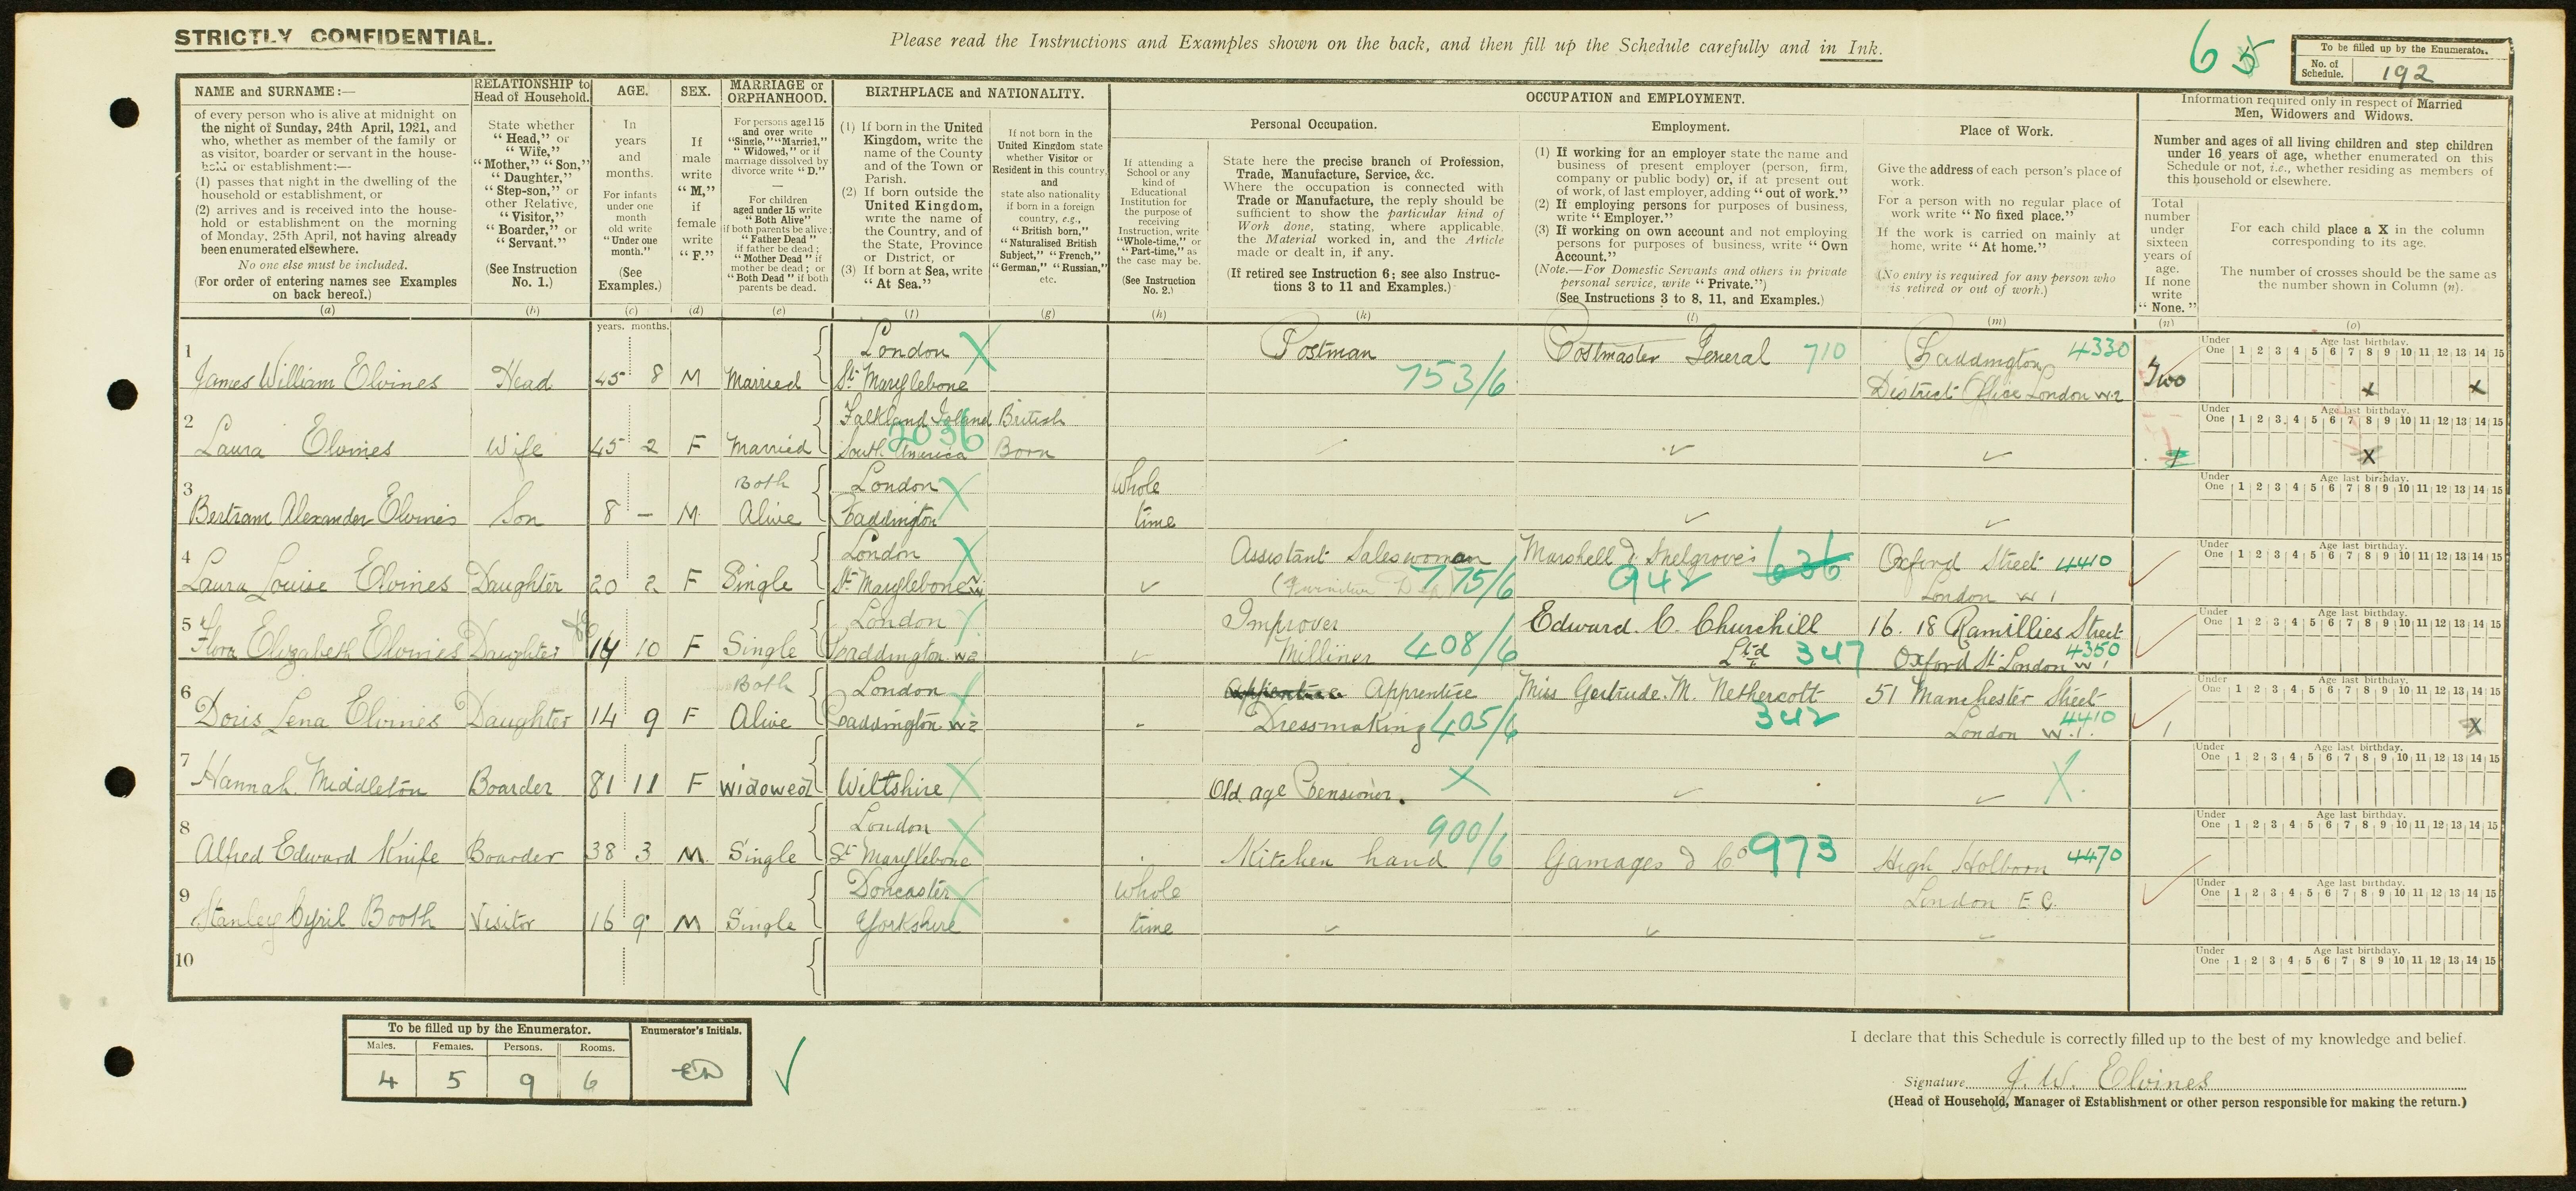 STRICTLY CONFIDENTIAL.
Please read the Instructions and Examples shown on the back, and then fill up the Schedule carefully and in Ink.
6 5
To be filled up by the Enumerator.
No. of Schedule. 192
NAME and SURNAME:—
of every person who is alive at midnight on
the night of Sunday, 24th April, 1921, and
who, whether as member of the family or
as visitor, boarder or servant in the house-
hold or establishment:—
(1) passes that night in the dwelling of the
household or establishment, or
(2) arrives and is received into the house-
hold or establishment on the morning
of Monday, 25th April, not having already
been enumerated elsewhere.
No one else must be included.
(For order of entering names see Examples
on back hereof.)
(a)
RELATIONSHIP to
Head of Household.
State whether
"Head," or
"Wife,"
"Mother," "Son,"
"Daughter,"
"Step-son," or
other Relative,
"Visitor,"
"Boarder," or
"Servant."
(See Instruction
No. 1.)
(b)
AGE.
In
years
and
months.
For infants
under one
month
old write
"Under one
month."
(See
Examples.)
(c)
SEX.
If
male
write
"M,"
if
female
write
"F."
(d)
MARRIAGE or
ORPHANHOOD.
For persons aged 15
and over write
"Single," "Married,"
"Widowed," or if
marriage dissolved by
divorce write "D."
—
For children
aged under 15 write
"Both Alive"
if both parents be alive;
"Father Dead"
if father be dead;
"Mother Dead" if
mother be dead; or
"Both Dead" if both
parents be dead.
(e)
BIRTHPLACE and NATIONALITY.
(1) If born in the United
Kingdom, write the
name of the County
and of the Town or
Parish.
(2) If born outside the
United Kingdom,
write the name of
the Country, and of
the State, Province
or District, or
(3) If born at Sea, write
"At Sea."
(f)
If not born in the
United Kingdom state
whether Visitor or
Resident in this country,
and
state also nationality
if born in a foreign
country, e.g.,
"British born,"
"Naturalised British
Subject," "French,"
"German," "Russian,"
etc.
(g)
OCCUPATION and EMPLOYMENT.
If attending a
School or any
kind of
Educational
Institution for
the purpose of
receiving
Instruction, write
"Whole-time," or
"Part-time," as
the case may be.
(See Instruction
No. 2.)
(h)
Personal Occupation.
State here the precise branch of Profession,
Trade, Manufacture, Service, &c.
Where the occupation is connected with
Trade or Manufacture, the reply should be
sufficient to show the particular kind of
Work done, stating, where applicable,
the Material worked in, and the Article
made or dealt in, if any.
(If retired see Instruction 6; see also Instruc-
tions 3 to 11 and Examples.)
(k)
Employment.
(1) If working for an employer state the name and
business of present employer (person, firm,
company or public body) or, if at present out
of work, of last employer, adding "out of work."
(2) If employing persons for purposes of business,
write "Employer."
(3) If working on own account and not employing
persons for purposes of business, write "Own
Account."
(Note.—For Domestic Servants and others in private
personal service, write "Private.")
(See Instructions 3 to 8, 11, and Examples.)
(l)
Place of Work.
Give the address of each person's place of
work.
For a person with no regular place of
work write "No fixed place."
If the work is carried on mainly at
home, write "At home."
(No entry is required for any person who
is retired or out of work.)
(m)
Information required only in respect of Married
Men, Widowers and Widows.
Number and ages of all living children and step children
under 16 years of age, whether enumerated on this
Schedule or not, i.e., whether residing as members of
this household or elsewhere.
Total
number
under
sixteen
years of
age.
If none
write
"None."
(n)
For each child place a X in the column
corresponding to its age.
The number of crosses should be the same as
the number shown in Column (n).
(o)
years. months.
1 James William Elvines Head 45 8 M Married London St Marylebone Postman 753/6 Postmaster General 710 Paddington 4330 District Office London W.2 Two
Under One 1 2 3 4 5 6 7 8 9 10 11 12 13 14 15 Age last birthday. x x
2 Laura Elvines Wife 45 2 F Married Falkland Island South America 2036 British Born
Under One 1 2 3 4 5 6 7 8 9 10 11 12 13 14 15 Age last birthday. x
3 Bertram Alexander Elvines Son 8 — M Both Alive London Paddington whole time
Under One 1 2 3 4 5 6 7 8 9 10 11 12 13 14 15 Age last birthday.
4 Laura Louise Elvines Daughter 20 2 F Single London St Marylebone W1 Assistant Saleswoman (Furniture Dep) 775/6 Marshell & Snelgroves 636 942 Oxford Street 4410 London W1
Under One 1 2 3 4 5 6 7 8 9 10 11 12 13 14 15 Age last birthday.
5 Flora Elizabeth Elvines Daughter 10 F Single London Paddington W2 Improver Milliner 408/6 Edward. C. Churchill Ltd 347 16. 18 Ramillies Street 4350 Oxford St. London W1
Under One 1 2 3 4 5 6 7 8 9 10 11 12 13 14 15 Age last birthday.
6 Doris Lena Elvines Daughter 14 9 F Both Alive London Paddington W2 Apprentice Dressmaking 405/6 Miss Gertrude. M. Nethercott 342 51 Manchester Street 4410 London W.1.
Under One 1 2 3 4 5 6 7 8 9 10 11 12 13 14 15 Age last birthday. x
7 Hannah Middleton Boarder 81 11 F Widowed Wiltshire Old age Pensioner.
Under One 1 2 3 4 5 6 7 8 9 10 11 12 13 14 15 Age last birthday.
8 Alfred Edward Knife Boarder 38 3 M. Single London St Marylebone Kitchen hand 900/6 Gamages & Co 973 High Holborn 4470 London E.C.
Under One 1 2 3 4 5 6 7 8 9 10 11 12 13 14 15 Age last birthday.
9 Stanley Cyril Booth Visitor 16 9 M Single Doncaster Yorkshire whole time
Under One 1 2 3 4 5 6 7 8 9 10 11 12 13 14 15 Age last birthday.
10
Under One 1 2 3 4 5 6 7 8 9 10 11 12 13 14 15 Age last birthday.
To be filled up by the Enumerator.
Males. Females. Persons. Rooms.
4 5 9 6
Enumerator's Initials.
ED
I declare that this Schedule is correctly filled up to the best of my knowledge and belief.
Signature J. W. Elvines
(Head of Household, Manager of Establishment or other person responsible for making the return.)